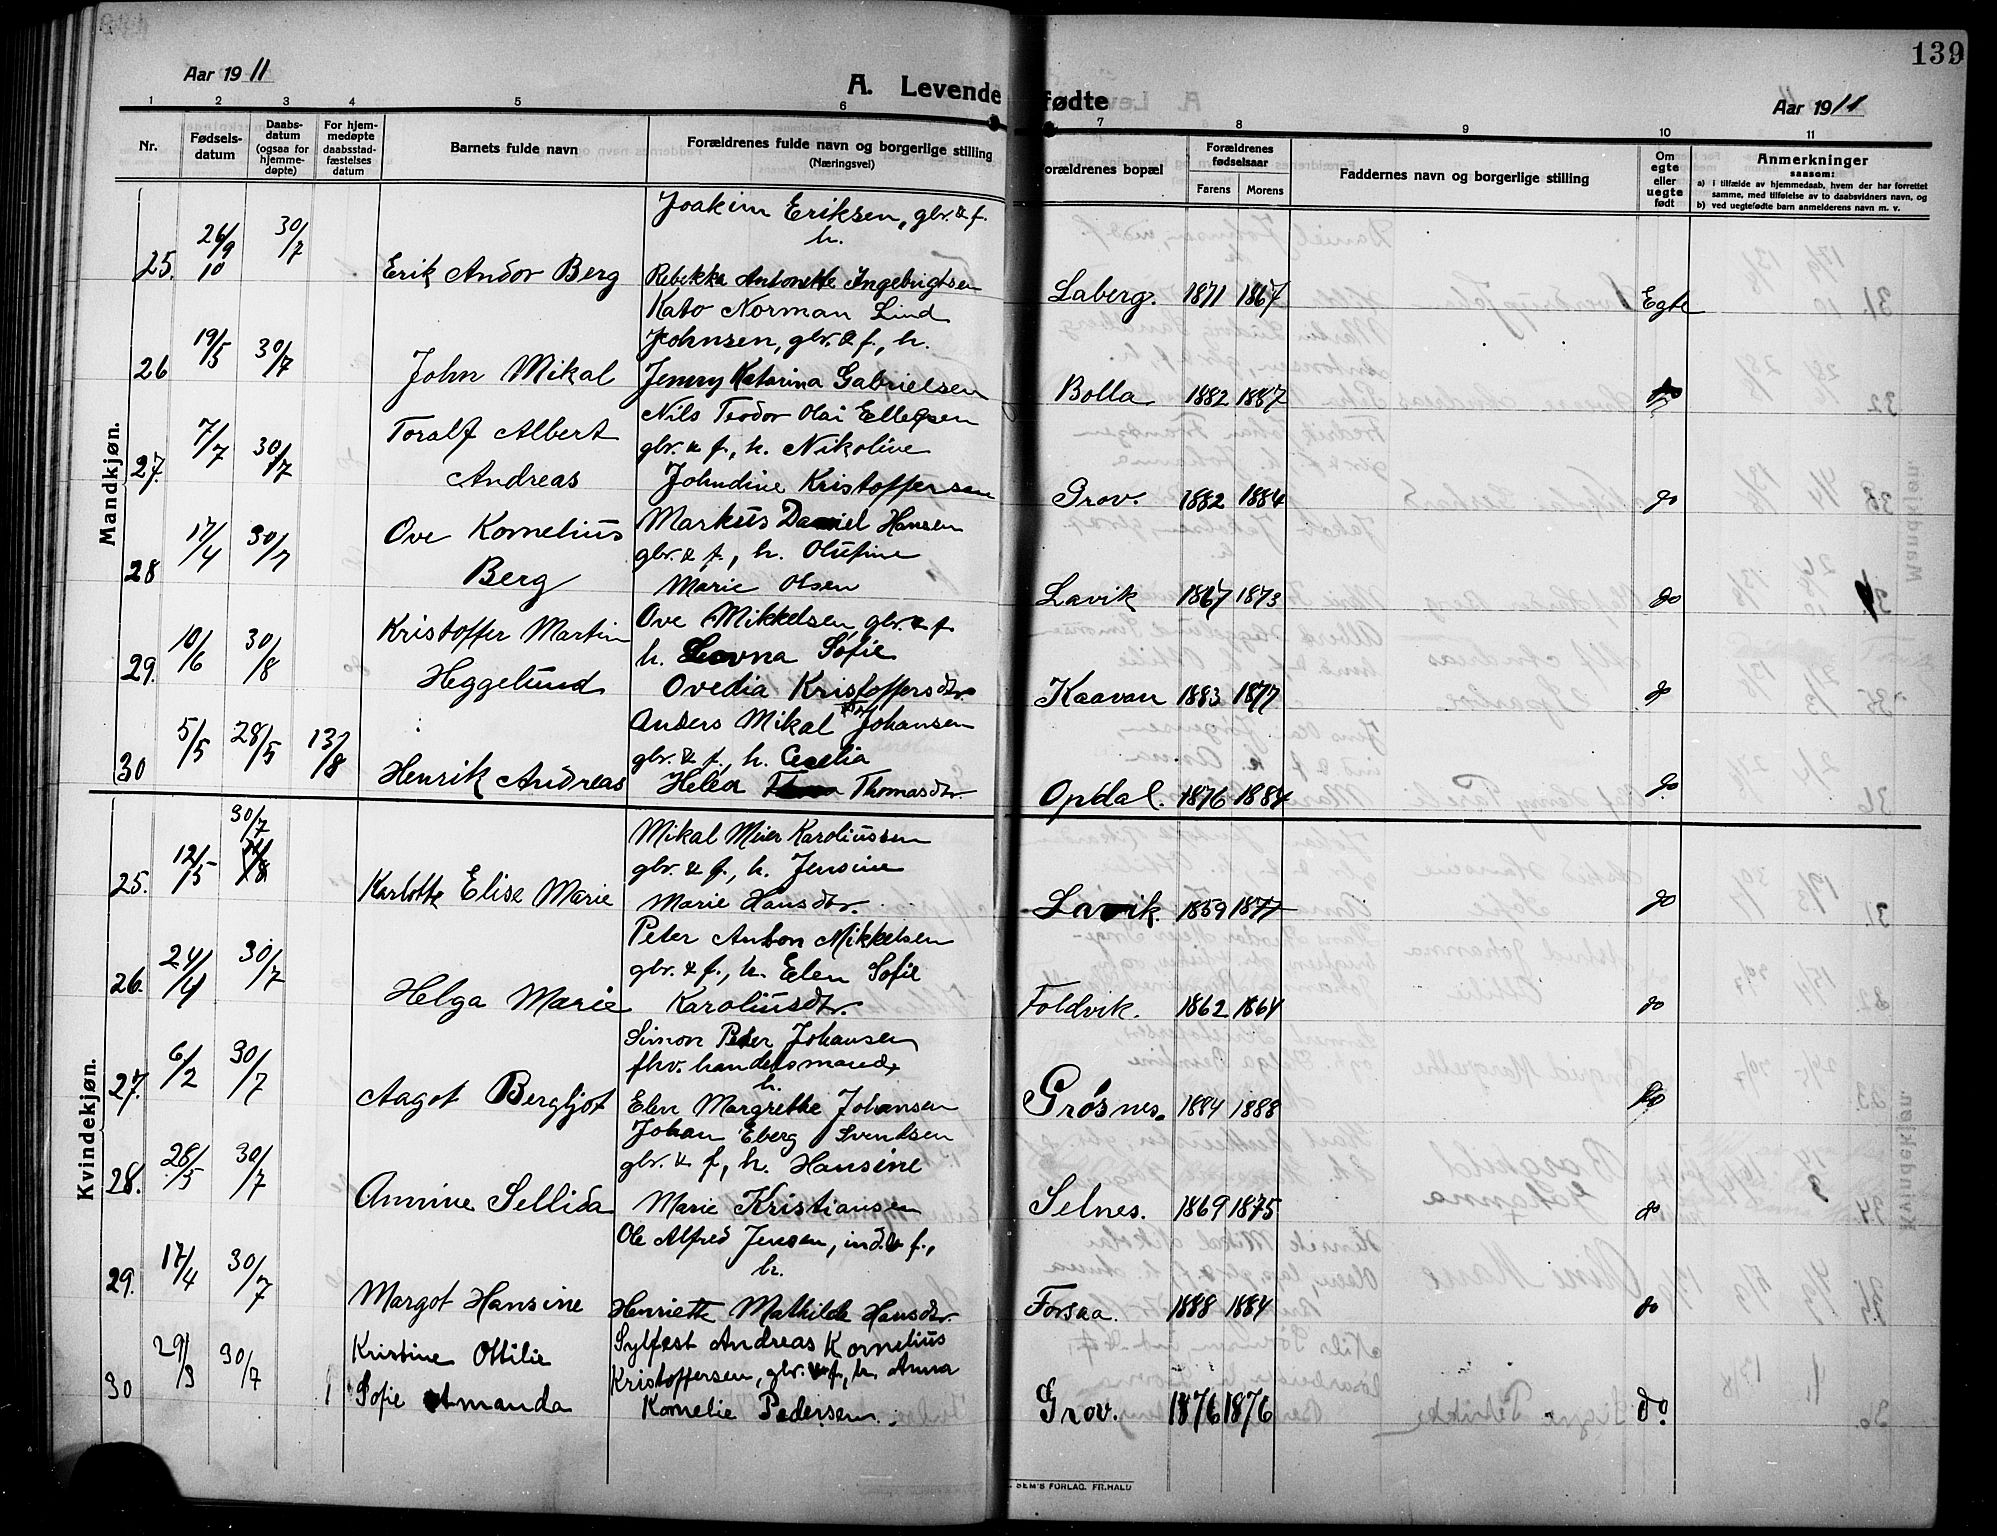 139
Aar 1911
A. Levende fødte
Aar 1911
1 2 3 4 5 6 7 8 9 10 11
Nr.
Fødsels-
datum
Daabs-
datum
(ogsaa for
hjemme-
døpte)
For hjem-
medøpte
daabsstad-
fæstelses
datum
Barnets fulde navn
Forældrenes fulde navn og borgerlige stilling
(Næringsvei)
Forældrenes bopæl
Forældrenes
fødselsaar
Farens Morens
Faddernes navn og borgerlige stilling
Om
egte
eller
uegte
født
Anmerkninger
saasom:
a) i tilfælde av hjemmedaab, hvem der har forrettet
samme, med tilføielse av to daabsvidners navn, og
b) ved uegtefødte barn anmelderens navn m. v.
Mandkjøn.
Joakim Eriksen, gbr. & f.
h.
25. 26/9 10 30/7 Erik Andor Berg Rebekka Antonette Ingebrigtsen Laberg. 1871 1867 Egte
Kato Norman Lind
Johnsen, gbr. & f., h.
26 19/5 30/7 John Mikal Jenny Katarina Gabrielsen Bolla 1882 1887 do
Toralf Albert Nils Teodor Olai Ellefsen
gbr. & f., h. Nikoline
27. 7/7 30/7 Andreas Johndine Kristoffersen Grov. 1882 1884 do
Ove Kornelius Markus Daniel Hansen
gbr. & f., h. Olufine
28 17/4 30/7 Berg Marie Olsen Lavik 1867 1873 do
Kristoffer Martin Ove Mikkelsen, gbr. & f.
h. Lovna Sofie
29. 10/6 30/8 Heggelund Ovedia Kristoffersdtr. Kaavan 1883 1877 do
Anders Mikal Johansen
gbr. & f., h. Cecelia
30 5/5 28/5 13/8 Henrik Andreas Helea Thomasdtr. Opdal. 1876 1884 do
Kvindekjøn.
30/7 Mikal Meier Karoliussen
gbr. & f., h. Jensine
25. 12/5 Karlotte Elise Marie Marie Hansdtr. Lavik. 1859 1877 do
Peter Anton Mikkelsen
gbr. & f., h. Elen Sofie
26. 24/4 30/7 Helga Marie Karoliusdtr. Foldvik. 1862 1864 do
Simon Peter Johansen
fhv. handelsmand,
h.
27. 6/2 30/7 Aagot Bergljot Elen Margrethe Johansen Grøsnes. 1884 1888 do
Johan Eberg Svendsen
gbr. & f., h. Hansine
28. 28/5 30/7 Annine Sellida Marie Kristiansen Selnes. 1869 1875 do
Ole Alfred Jensen, ind. & f.,
h.
29. 17/4 30/7 Margot Hansine Henriette Mathilde Hansdtr. Forsaa. 1888 1884 do
Kristine Ottilie Sylfest Andreas Kornelius
Kristoffersen, gbr. & f., h. Anna
30 29/3 30/7 Sofie Amanda Kornelie Pedersen. Grov. 1876 1876 do.
SEM'S FORLAG. FR.HALD